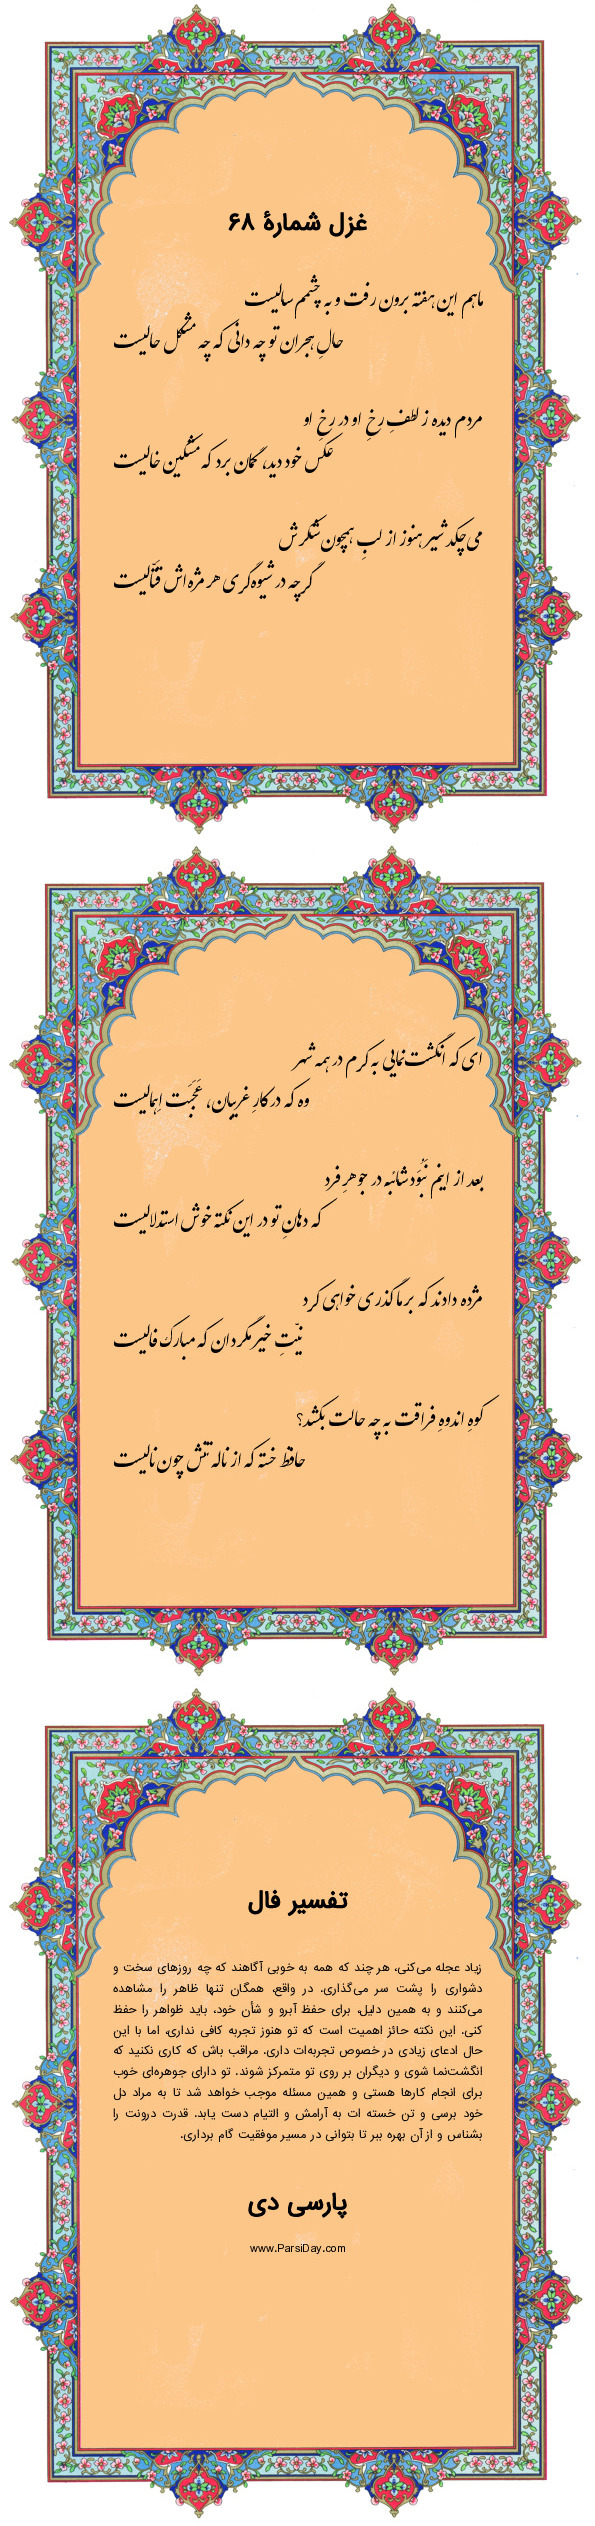 غزل شمارهٔ ۶۸
ماهم این هفته برون رفت و به چشمم سالیست
حالِ هجران تو چه دانی که چه مشکل حالیست
مردم دیده ز لطفِ رخِ او در رخِ او
عکس خود دید، گمان برد که مشکین خالیست
می‌چکد شیر هنوز از لبِ همچون شکرش
گر چه در شیوه‌گری هر مژه‌اش قتّالیست
ای که انگشت‌نمایی به کرم در همه شهر
وه که در کارِ غریبان، عَجَبَت اِهمالیست
بعد از اینم نَبُوَد شائبه در جوهرِ فرد
که دهانِ تو در این نکته خوش استدلالیست
مژده دادند که بر ما گذری خواهی کرد
نیّتِ خیر مگردان که مبارک فالیست
کوهِ اندوهِ فراقت به چه حالت بکشد؟
حافظ خسته که از ناله تنش چون نالیست
تفسیر فال
زیاد عجله می‌کنی، هر چند که همه به خوبی آگاهند که چه روزهای سخت و
دشواری را پشت سر می‌گذاری. در واقع، همگان تنها ظاهر را مشاهده
می‌کنند و به همین دلیل، برای حفظ آبرو و شأن خود، باید ظواهر را حفظ
کنی. این نکته حائز اهمیت است که تو هنوز تجربه کافی نداری، اما با این
حال ادعای زیادی در خصوص تجربه‌ات داری. مراقب باش که کاری نکنید که
انگشت‌نما شوی و دیگران بر روی تو متمرکز شوند. تو دارای جوهره‌ای خوب
برای انجام کارها هستی و همین مسئله موجب خواهد شد تا به مراد دل
خود برسی و تن خسته ات به آرامش و التیام دست یابد. قدرت درونت را
بشناس و از آن بهره ببر تا بتوانی در مسیر موفقیت گام برداری.
پارسی دی
www.ParsiDay.com